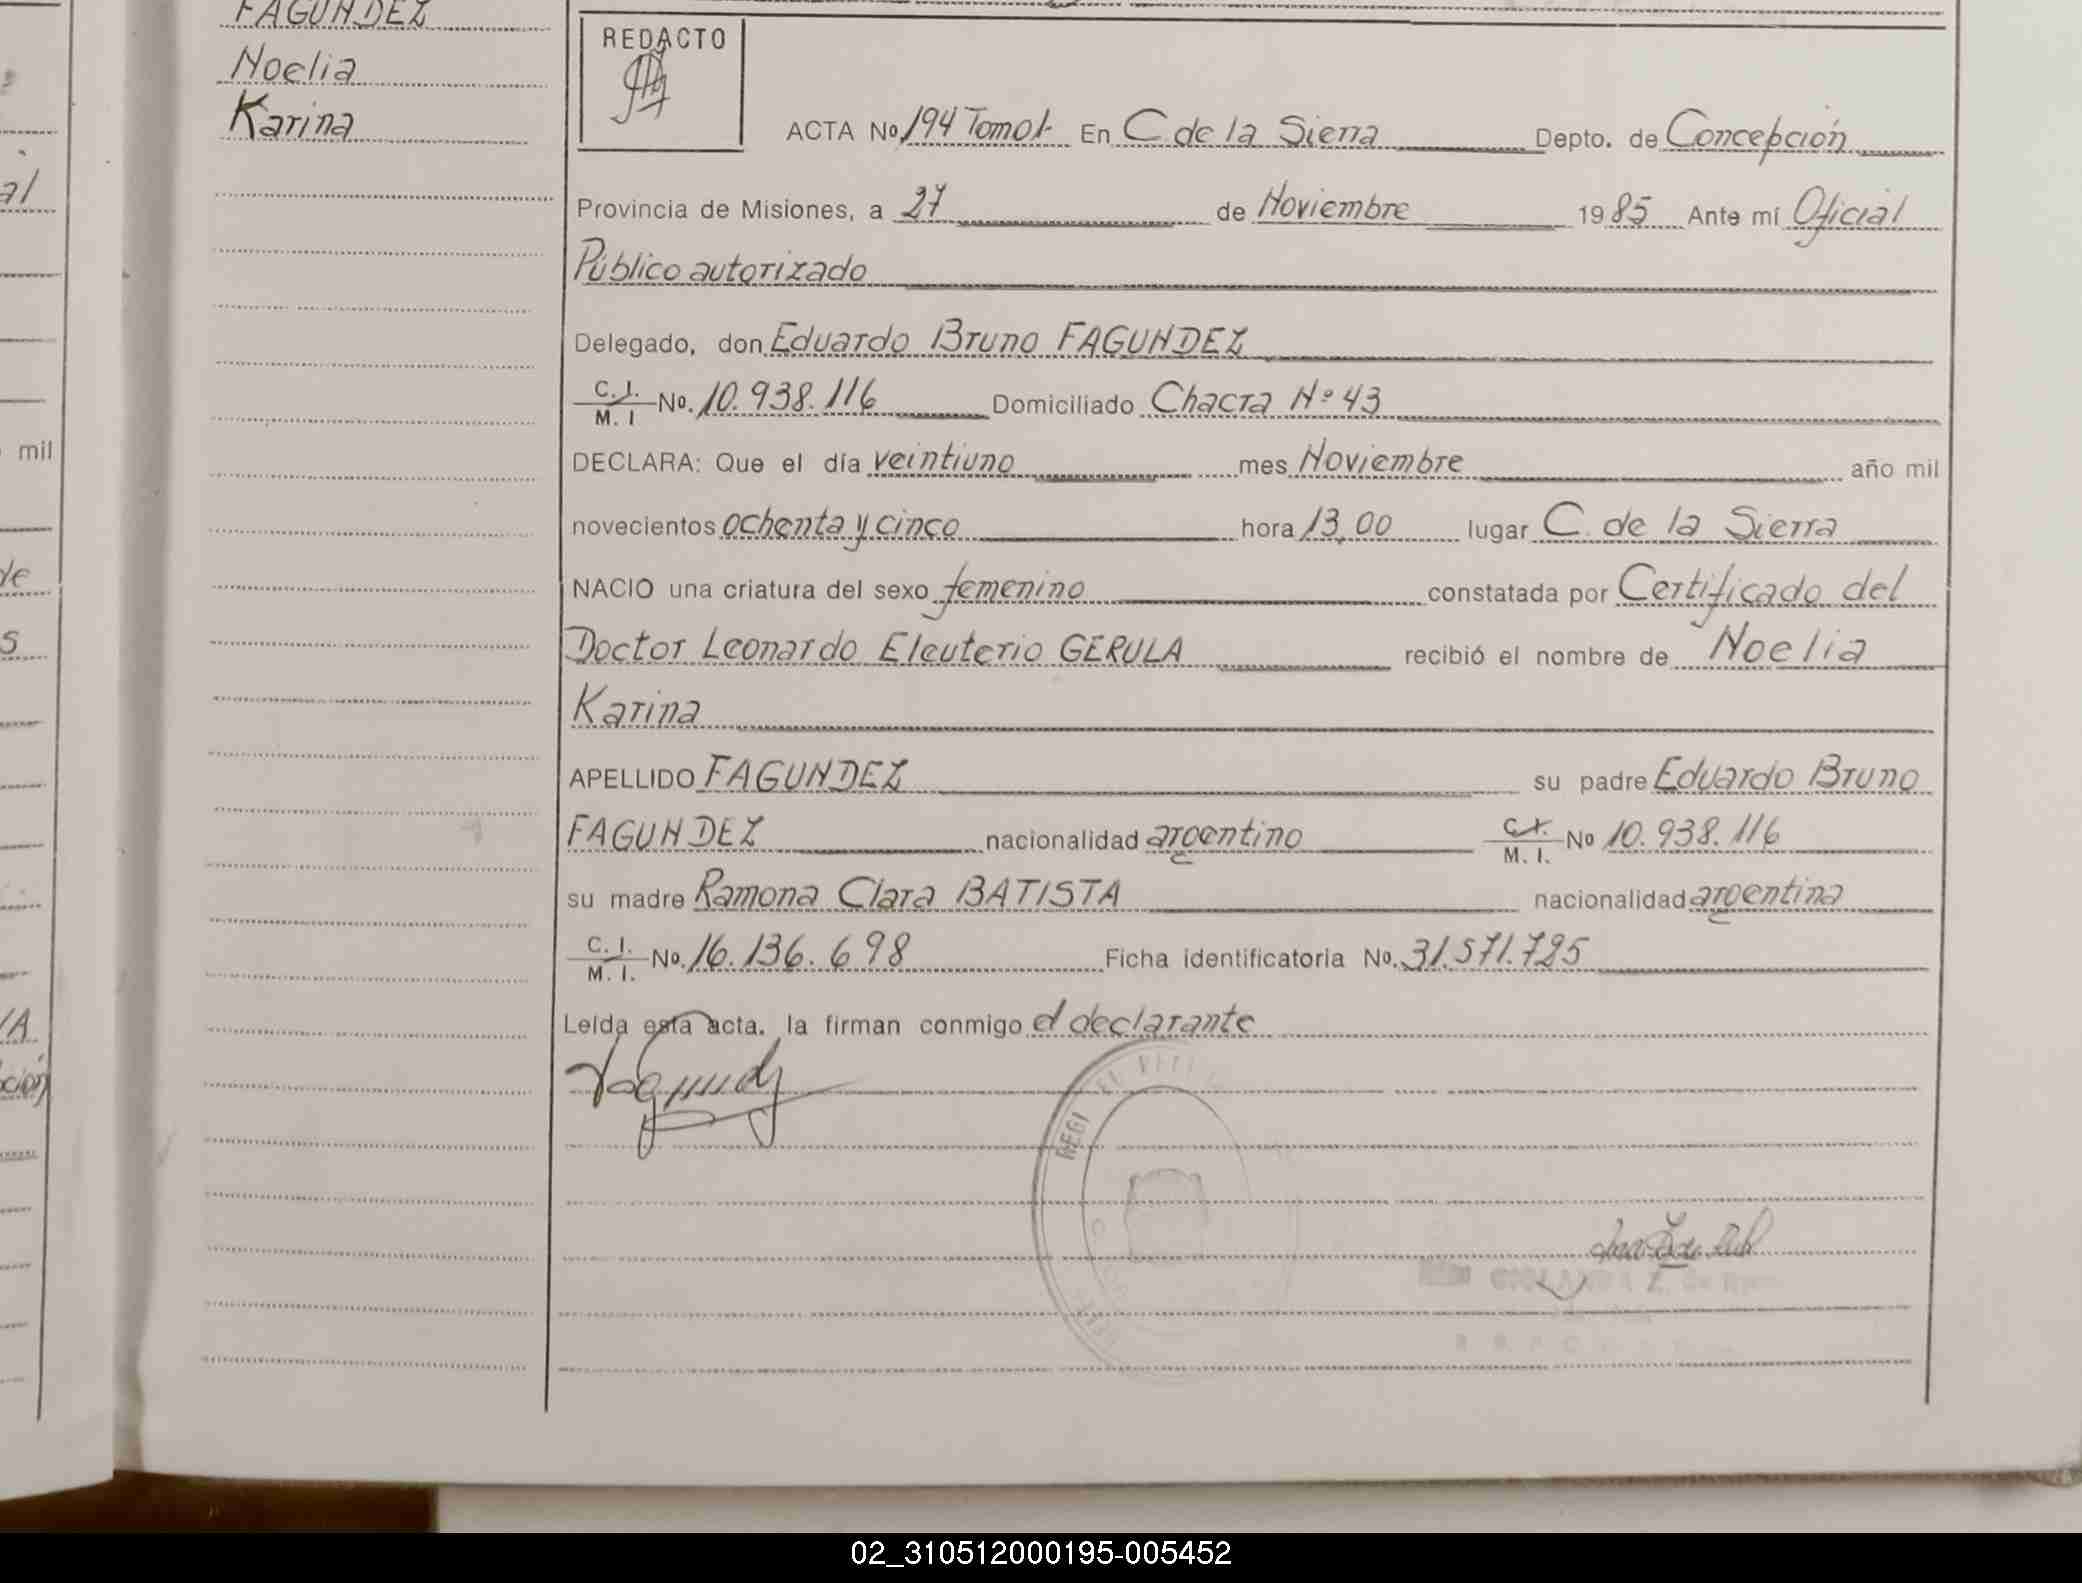 FAGUNDEZ
Noelia
Karina
REDACTO
ACTA No 194 Tomo 1- En C. de la Sierra Depto. de Concepción
Provincia de Misiones, a 27 de Noviembre 1985 Ante mí Oficial
Público autorizado
Delegado, don Eduardo Bruno FAGUNDEZ
C. I. M. I No. 10.938.116 Domiciliado Chacra Nº 43
DECLARA: Que el día veintiuno mes Noviembre año mil
novecientos ochenta y cinco hora 13,00 lugar C. de la Sierra
NACIO una criatura del sexo femenino constatada por Certificado del
Doctor Leonardo Eleuterio GERULA recibió el nombre de Noelia
Karina
APELLIDO FAGUNDEZ su padre Eduardo Bruno
FAGUNDEZ nacionalidad argentino C. I. M. I. No 10.938.116
su madre Ramona Clara BATISTA nacionalidad argentina
C. I. M. I. No. 16.136.698 Ficha identificatoria No. 31.571.725
Leída esta acta, la firman conmigo el declarante
al
mil
de
s
ción
02_310512000195-005452